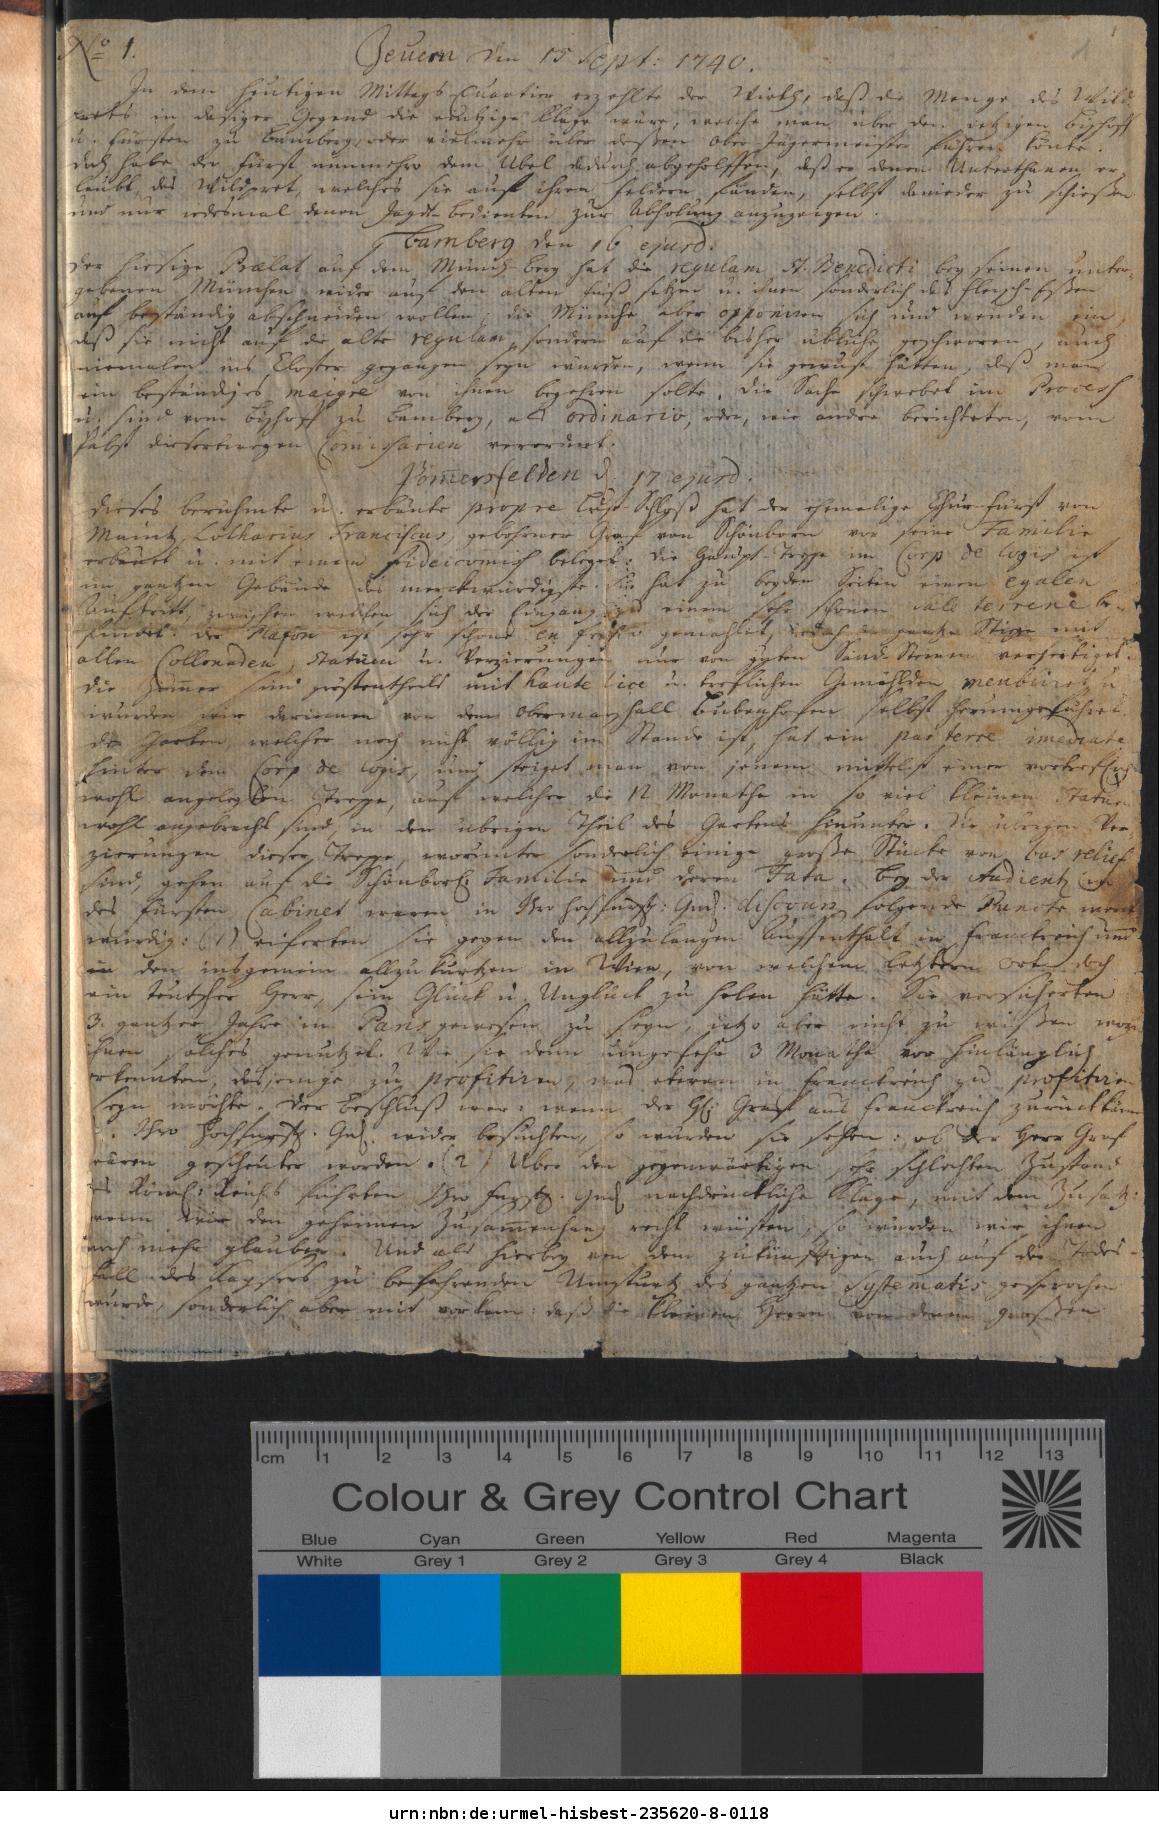 No 1.
Zeuern den 15 Sept: 1740.
In dem heutigen Mittags-Quartier erzehlte der Wirth, daß die Menge des Wild-
prets in dasiger Gegend die eintzige Klage wäre, welche man über den ietzigen Bischoff
u. Fürsten zu Bamberg, oder vielmehr über deßen Ober-Jägermeister führen könte.
Doch habe der Fürst nunmehro dem Übel dadurch abgeholffen, daß er denen Unterthanen er-
laubt, das Wildpret, welches sie auf ihren Feldern fänden, selbst danieder zu schießen
und nur iedesmal denen Jagd-Bedienten zur Abholung anzuzeigen.
Bamberg den 16 ejusd.
Der hiesige Prælat auf dem Münch-Berg hat die regulam St. Benedicti bey seinen unter-
gebenen München wider auf den alten Fuß setzen u. ihnen sonderlich das Fleisch-Eßen
auf beständig abschneiden wollen; die Münche aber opponiren sich und wenden ein,
daß sie nicht auf die alte regulam, sondern auf die bisher übliche geschworen, auch
niemalen ins Closter gegangen seyn würden, wenn sie gewust hätten, daß man
ein beständiges maigre von ihnen begehren solte. Die Sache schwebet im Process
u. sind vom Bischoff zu Bamberg, als ordinario, oder, wie andre berichteten, vom
Pabst dieserwegen Comissarien verordnet.
Pomersfelden d. 17 ejusd.
Dieses berühmte u. erbaute propre Lust-Schloß hat der ehemalige Chur-Fürst von
Maintz, Lotharius Franciscus, gebohrner Graf von Schönborn vor seine Familie
erbauet u. mit einem Fideicomiß beleget. Die Haupt-Treppe im Corp de logis ist
im gantzen Gebäude das merckwürdigste. Sie hat zu beyden Seiten einen egalen
Auftritt, zwischen welchen sich der Eingang zu einem sehr schönen Sale terrene be-
findet. Der Plafon ist sehr schön en fresco gemahlet, iedoch die gantze Stiege mit
allen Collonaden, Statuen u. Verzierungen nur von guten Sand-Steinen verfertiget.
Die Zimmer sind gröstentheils mit haute lice u. trefflichen Gemählden meubliret, u
wurden wir darinnen von dem Obermarschall Bubenhofen selbst herumgeführet.
Der Garten, welcher noch nicht völlig im Stande ist, hat ein parterre imediate
hinter dem Corp de logis, und steiget man von jenem mittelst einer vortrefflich
wohl angelegten Treppe, auf welcher die 12 Monathe in so viel kleinen Statuen
wohl angebracht sind, in den übrigen Theil des Gartens hinunter. Die übrigen Ver-
zierungen dieser Treppe, worunter sonderlich einige große Stücke von bas relief
sind, gehen auf die Schönborl. Familie und deren Fata. Bey der Audientz in
des Fürsten Cabinet waren in Ihro Hochfürstl: Gnd: discours folgende Puncte merck-
würdig: (1) eiferten sie gegen den allzulangen Auffenthalt in Franckreich und
in den insgemein allzukurtzen in Wien, von welchem letztern Orte doch
ein teutscher Herr, sein Glück u. Unglück zu holen hätte. Sie versicherten
3. gantzer Jahre in Paris gewesen zu seyn, ietzo aber nicht zu wißen worzu
ihnen solches genutzet. Wie sie denn ungefehr 3 Monathe vor hinlänglich
erkennten, dasjenige zu profitiren, was etwan in Franckreich zu profitiren
seyn möchte. Der Beschluß war: wenn der H: Graf aus Franckreich zurück käme
u. Ihro Hochfürstl. Gnd. wider besuchten, so würden sie sehen: ob der Herr Graf
wären gescheuter worden. (2) Über den gegenwärtigen sehr schlechten Zustand
des Röml: Reichs führten Ihro Fürstl. Gnd nachdrückliche Klage, mit dem Zusatz:
wenn wir den geheimen Zusammenhang recht wüsten, so würden wir ihnen
noch mehr glauben. Und als hierbey von dem zukünfftigen auch auf den Todes-
fall des Kaysers zu befahrenden Umsturtz des gantzen Systematis gesprochen
wurde, sonderlich aber mit vorkam: daß die kleinen Herrn von denen großen
Colour & Grey Control Chart
Blue Cyan Green Yellow Red Magenta
White Grey 1 Grey 2 Grey 3 Grey 4 Black
cm 1 2 3 4 5 6 7 8 9 10 11 12 13
urn:nbn:de:urmel-hisbest-235620-8-0118